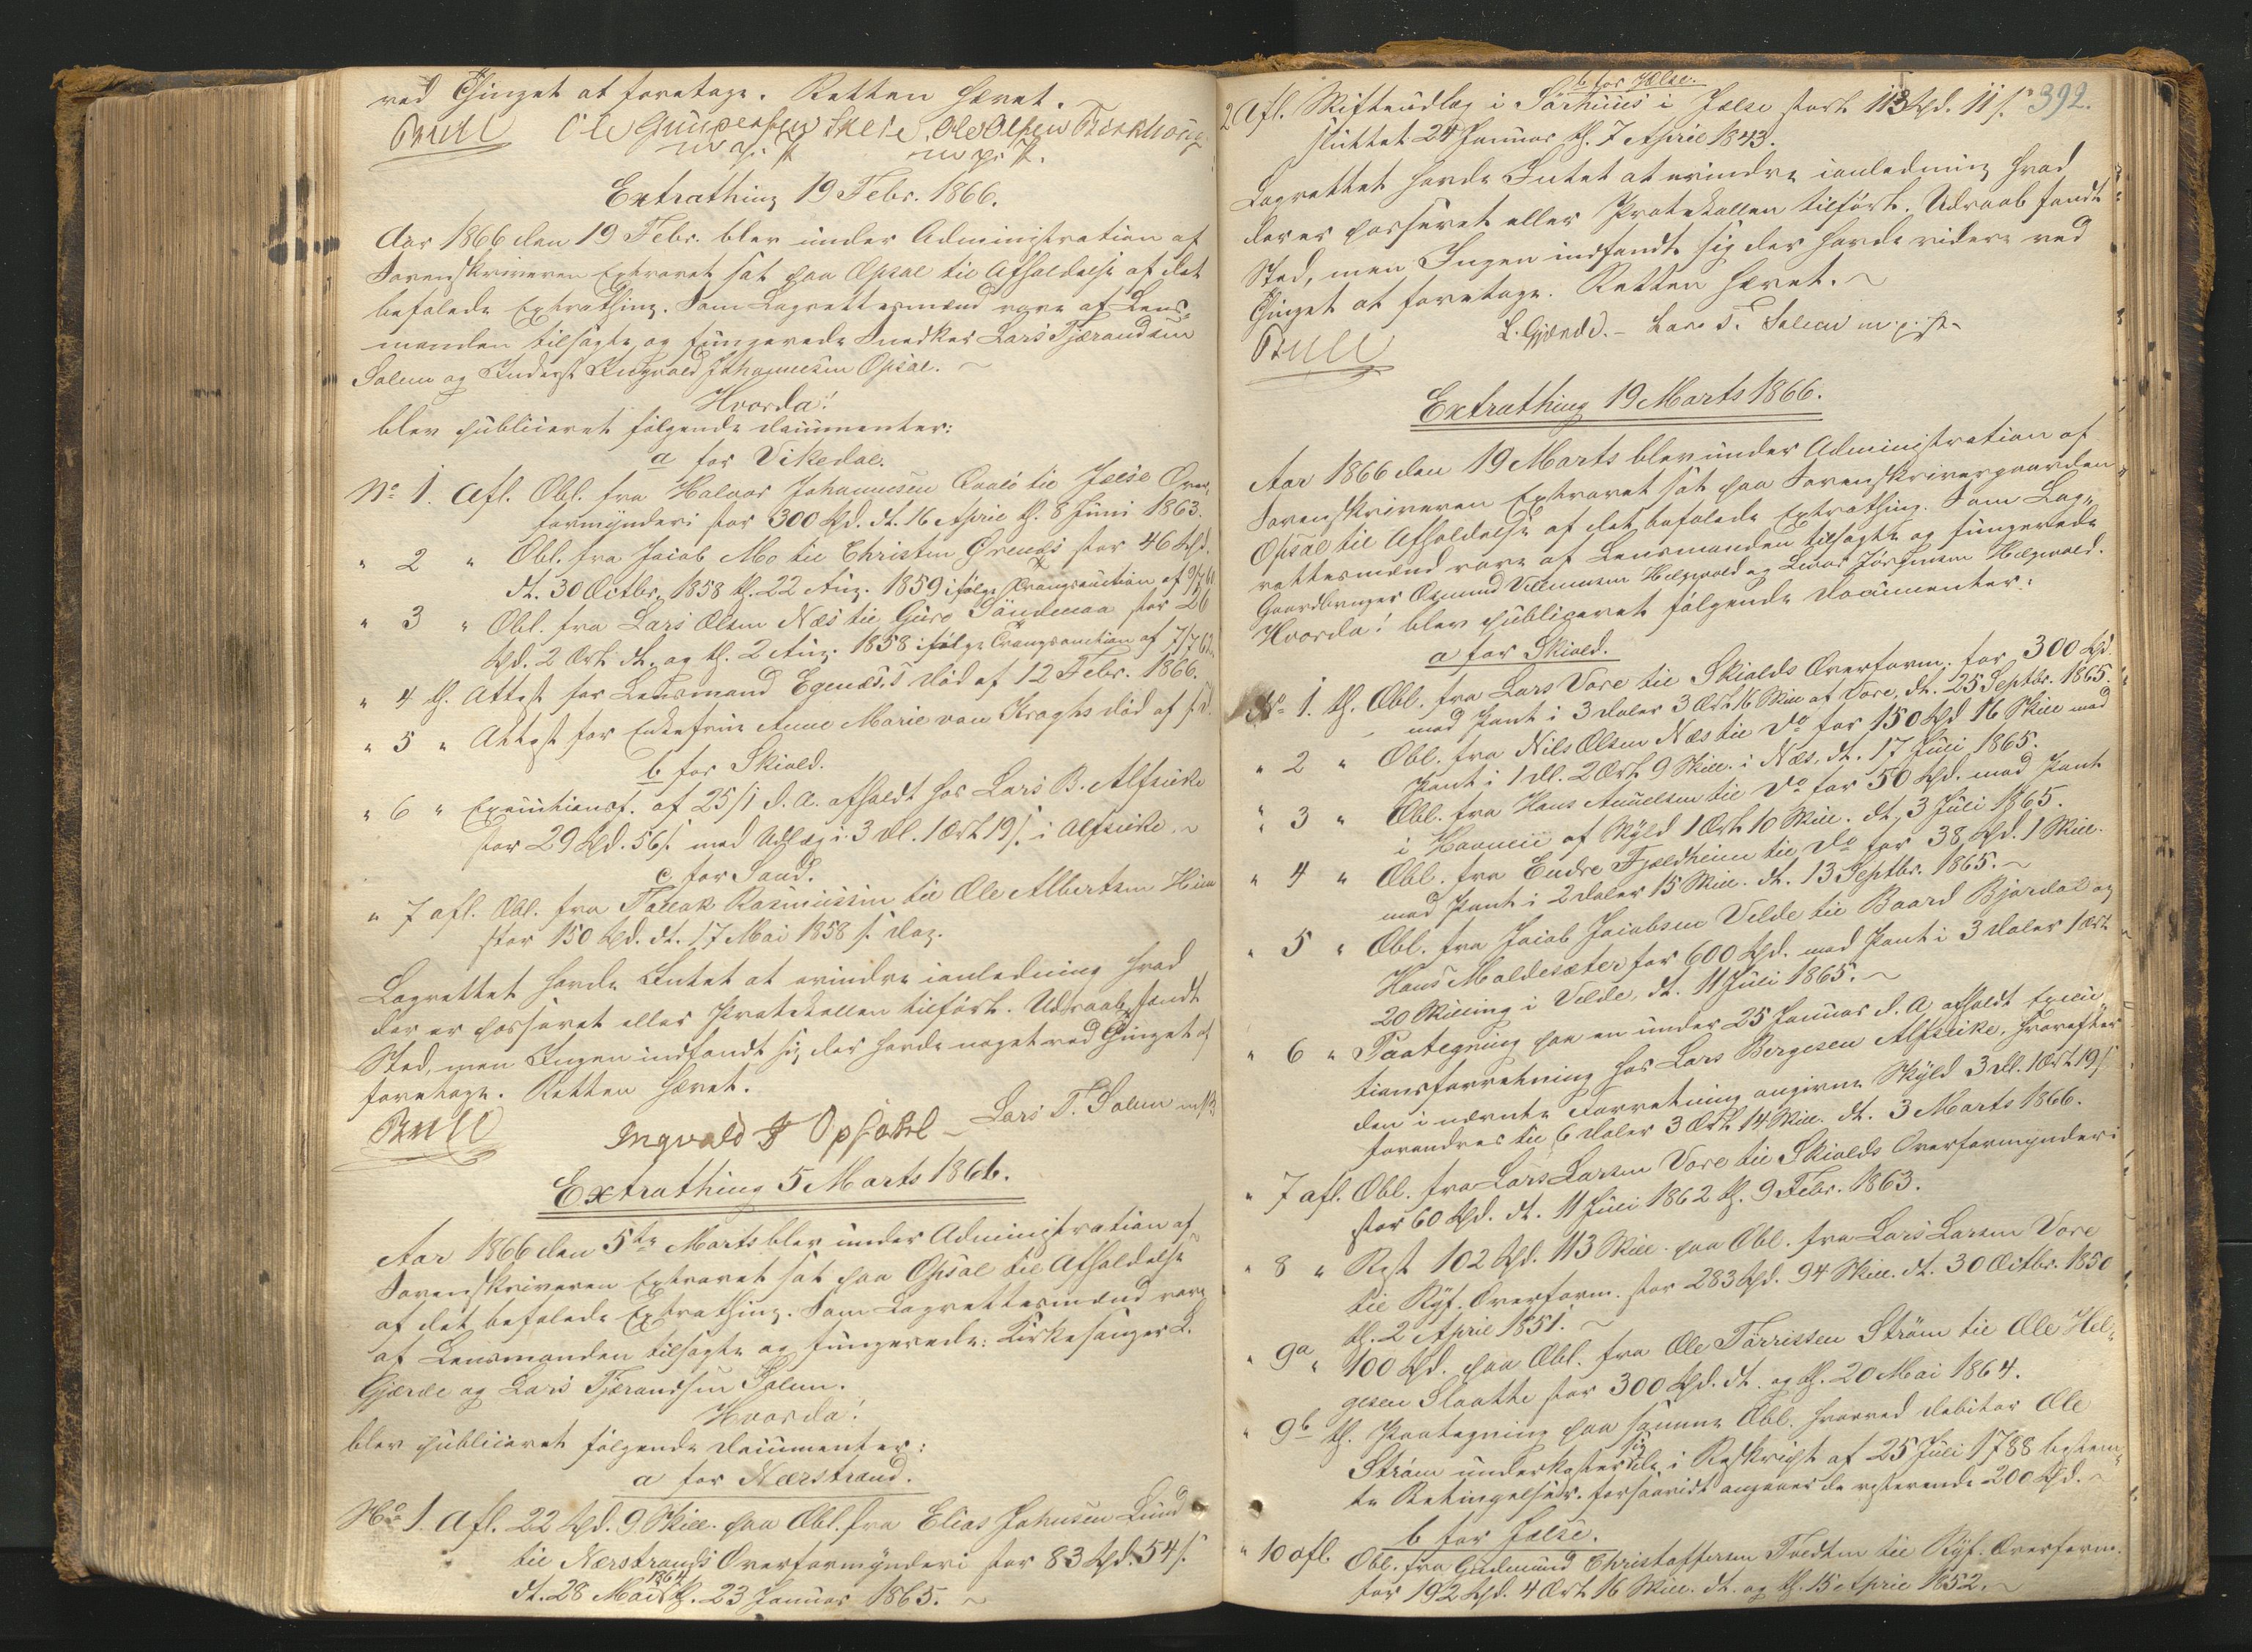 ved Thinget at foretage. Retten hævet.
Bull Ole Gunnersen Ole Olsen Birkhoug
m. p. P. m. p. P.
Extrathing 19 Febr. 1866.
Aar 1866 den 19 Febr. blev under Administration af
Sorenskriveren Extraret sat paa Opsal til Afholdelse af det
befalede Extrathing. Som Lagrettesmænd vare af Lens-
manden tilsagte og fungerede Snedker Lars Tjærandsen
Solem og Inderst Ingvald Johannesen Opsal.
Hvorda!
blev publiceret følgende Documenter:
a for Vikedal.
No 1. Afl. Obl. fra Halvor Johannesen til Jælse Over-
formynderi stor 300 Spd. dt. 16 April th. 8 Juni 1863.
" 2 " Obl. fra Jacob Mo til Christen Ørends stor 46 Spd.
dt. 30 Octbr. 1858 th. 22 Aug. 1859 ifølge Tvangsauction af 9/7 61
" 3 " Obl. fra Lars Olsen Næs til Guro Søndenaa stor 26
Spd. 2 Ort dt. og th. 2 Aug. 1858 ifølge Tvangsauction af 7/7 62.
" 4 th. Attest for Lensmand Egenæs's Død af 12 Febr. 1866.
" 5 " Attest for Enkefrue Anne Marie von Kroghs Død af s. D.
b for Skiold.
" 6 " Executionsf. af 25/1 d. A. afholdt hos Lars B. Alfseike
for 29 Spd. 56 s. med Udlæg i 3 Dl. 1 Ort 19 s. i Alfseike.
c for Sand.
" 7 afl. Obl. fra Tollak Rasmussen til Ole Albertsen Hiim
stor 150 Spd. dt. 17 Mai 1858 s. Dag.
Lagrettet havde Intet at erindre ianledning hvad
der er passeret eller Protokollen tilført. Udraab fandt
Sted, men Ingen indfandt sig der havde noget ved Thinget at
foretage. Retten hævet.
Bull Ingvald J Opsahl – Lars T. Solem m. p. P.
Extrathing 5 Marts 1866.
Aar 1866 den 5te Marts blev under Administration af
Sorenskriveren Extraret sat paa Opsal til Afholdelse
af det befalede Extrathing. Som Lagrettesmænd vare
af Lensmanden tilsagte og fungerede: Kirkesanger L.
Gjærde og Lars Tjærandsen Solem.
Hvorda!
blev publiceret følgende Documenter:
a for Nærstrand.
No 1. Afl. 22 Spd. 9 Skill. paa Obl. fra Elias Johnsen Lund
til Nærstrands Overformynderi stor 83 Spd. 54 s.
dt. 28 Mai 1864 th. 23 Januar 1865.
b for Jælse.
2 Afl. Skifteudlæg i Sørhuus i Jælse stort 113 Spd. 11 s. 392.
sluttet 24 Januar th. 7 April 1843.
Lagrettet havde Intet at erindre ianledning hvad
der er passeret eller Protokollen tilført. Udraab fandt
Sted, men Ingen indfandt sig der havde videre ved
Thinget at foretage. Retten hævet.
Bull L. Gjærde. – Lars T. Solem m. p. P.
Extrathing 19 Marts 1866.
Aar 1866 den 19 Marts blev under Administration af
Sorenskriveren Extraret sat paa Sorenskrivergaarden
Opsal til Afholdelse af det befalede Extrathing. Som Lag-
rettesmænd vare af Lensmanden tilsagte og fungerede
Gaardbruger Osmund Villumsen Helgevold og Iver Jørgensen Helgevold.
Hvorda! blev publiceret følgende Documenter:
a for Skiold.
No 1. th. Obl. fra Lars Vore til Skiolds Overform. for 300 Spd.
med Pant i 3 Daler 3 Ort 16 Skill af Vore, dt. 25 Septbr. 1865.
" 2 " Obl. fra Nils Olsen Næs til Do for 150 Spd 16 Skill med
Pant i 1 Dl. 2 Ort 9 Skill. i Næs, dt. 17 Juli 1865.
" 3 " Obl. fra Hans Amuelsen til Do for 50 Spd. med Pant
i af Skyld 1 Ort 10 Skill. dt. 3 Juli 1865.
" 4 " Obl. fra Endre Fjeldheim til Do for 38 Spd. 1 Skill.
med Pant i 2 Daler 15 Skill. dt. 13 Septbr. 1865.
" 5 " Obl. fra Jacob Jacobsen Velde til Baard Bjordal og
Hans Moldesæter for 600 Spd. med Pant i 3 Daler 1 Ort
20 Skilling i Velde, dt. 11 Juli 1865.
" 6 " Paategning paa en under 25 Januar d. A. afholdt Execu-
tionsforretning hos Lars Bergesen Alfseike, hvorefter
den i nævnte Forretning angivne Skyld 3 Dl. 1 Ort 19 s
forandres til 6 Daler 3 Ort 14 Skill. dt. 3 Marts 1866.
" 7 afl. Obl. fra Lars Larsen Vore til Skiolds Overformynderi
stor 60 Spd. dt. 11 Juli 1862 th. 9 Febr. 1863.
" 8 " Rest 102 Spd. 113 Skill. paa Obl. fra Lars Larsen Vore
til Ryf. Overform. stor 283 Spd. 94 Skill. dt. 30 Octbr. 1850
th. 2 April 1851.
" 9a " 100 Spd. paa Obl. fra Ole Tørrissen Strøm til Ole Hel-
gesen Slaatte stor 300 Spd. dt. og th. 20 Mai 1864.
" 9b th. Paategning paa samme Obl. hvorved Debitor Ole
Strøm underkaster sig de i Reskript af 25 Juli 1788 bestem-
te Betingelser, forsaavidt angaaer de resterende 200 Spd.
b for Jælse.
" 10 afl. Obl. fra Gudmund Christoffersen Tvedten til Ryf. Overform.
for 192 Spd. 4 Ort 16 Skill. dt. og th. 15 April 1852.